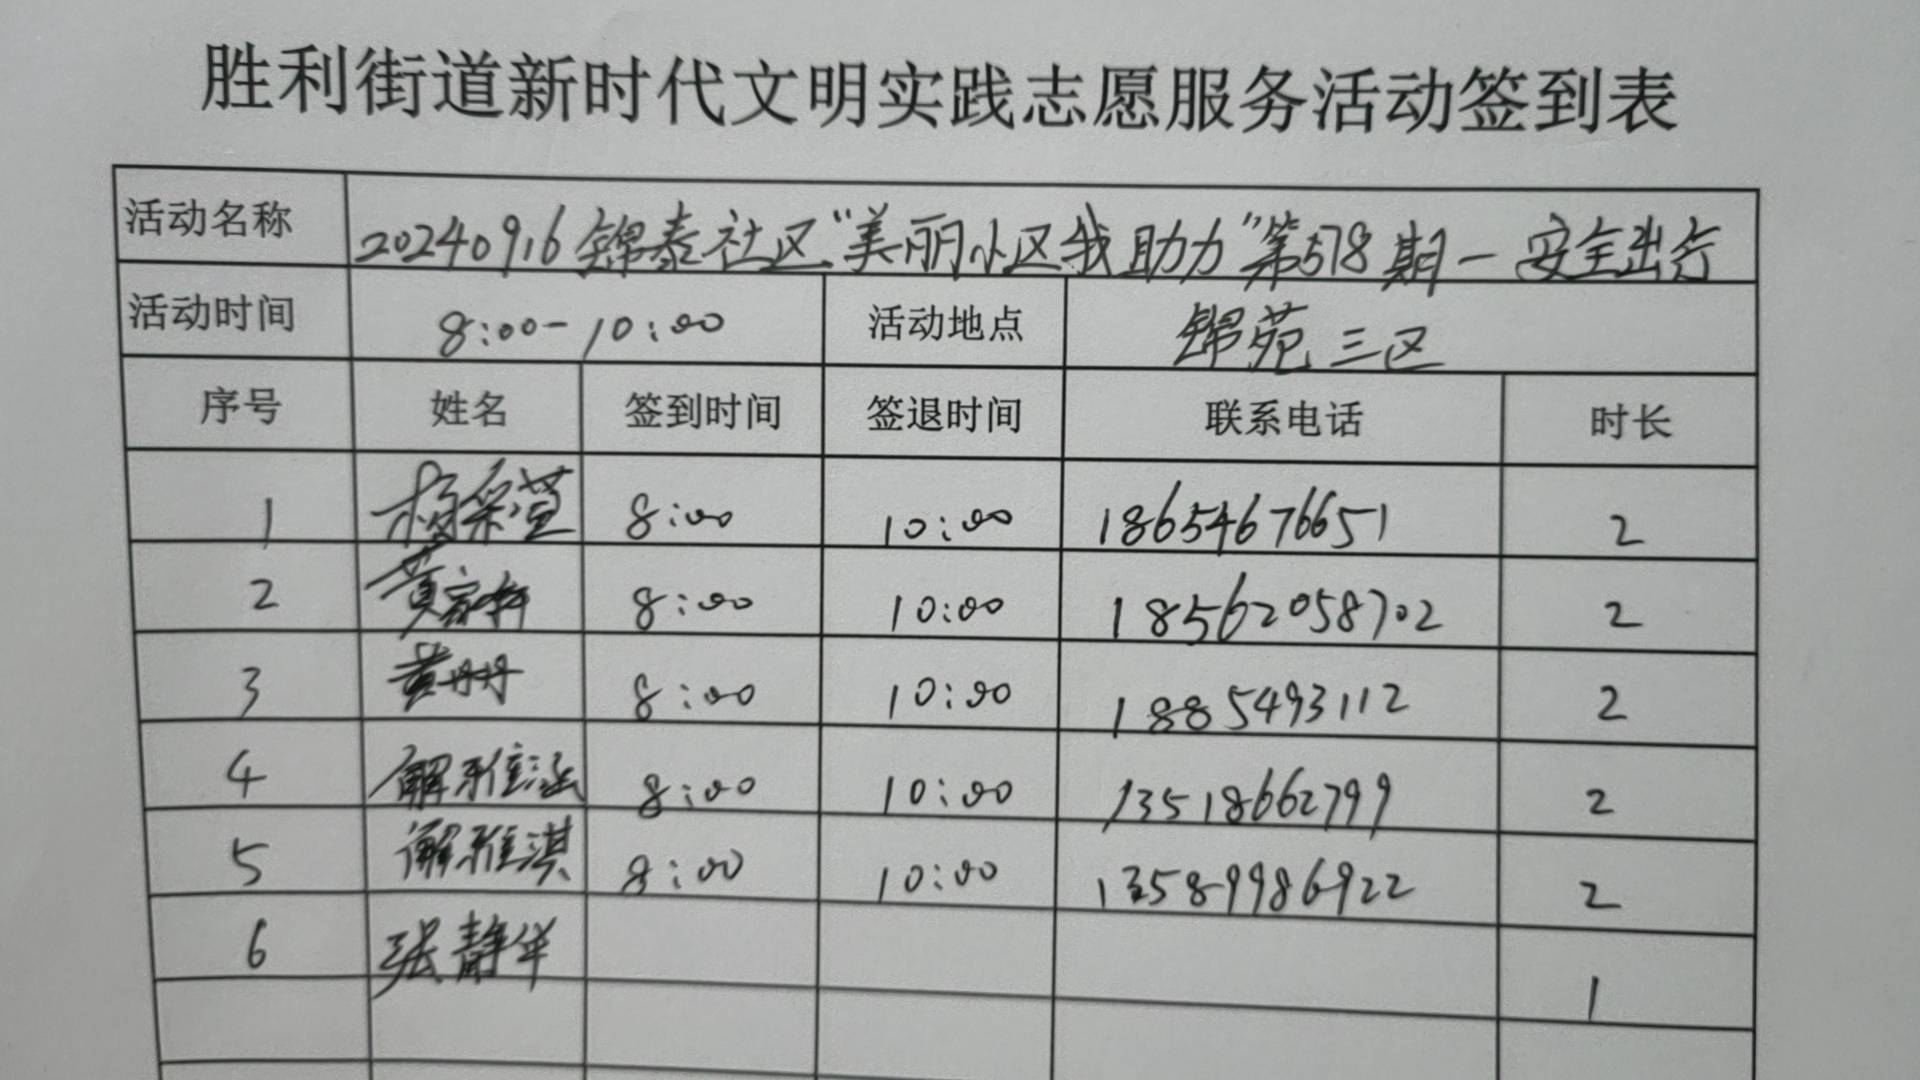 胜利街道新时代文明实践志愿服务活动签到表
活动名称 20240916锦泰社区“美丽小区我助力”第578期-安全出行
活动时间 8:00-10:00 活动地点 锦苑三区
序号 姓名 签到时间 签退时间 联系电话 时长
1 杨采萱 8:00 10:00 18654676651 2
2 黄家轩 8:00 10:00 18562058702 2
3 黄丹丹 8:00 10:00 18854931112 2
4 解雅涵 8:00 10:00 13518662799 2
5 解雅淇 8:00 10:00 13589986922 2
6 张静华 1